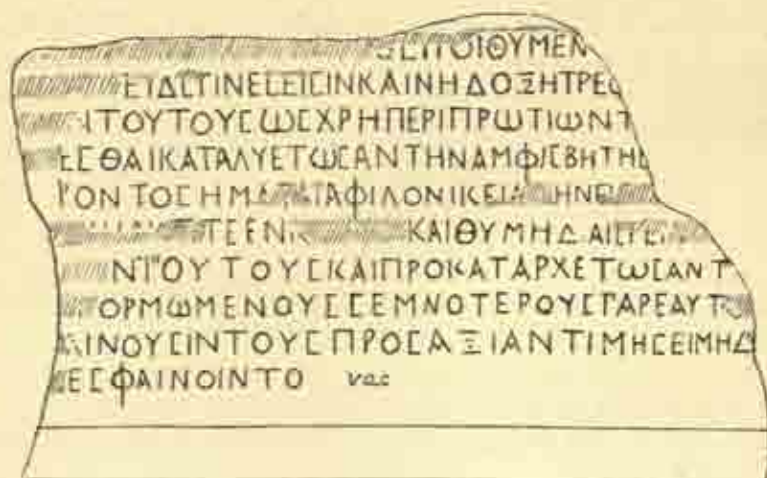 ΟΙΘΥΜΕΝ
ΕΙΔΕΤΙΝΕΣΕΙΣΙΝΚΑΙΝΗΔΟΞΗΤΡΕΦ
ΙΤΟΥΤΟΥΣωΣΧΡΗΠΕΡΙΠΡωΤΙωΝΤ
ΕΣΘΑΙΚΑΤΑΛΥΕΤωΣΑΝΤΗΝΑΜΦΙΣΒΗΤΗΣ
ΡΟΝΤΟΣΗΜ ΤΑΦΙΛΟΝΙΚΕΙΑ ΗΝΕΙ
ΤΕΕΝ ΚΑΙΘΥΜΗΔ ΑΙ
ΝΤΟΥΤΟΥΣΚΑΙΠΡΟΚΑΤΑΡΧΕΤωΣΑΝΤ
ΟΡΜωΜΕΝΟΥΣΣΕΜΝΟΤΕΡΟΥΣΓΑΡΕΑΥΤ
ΙΝΟΥΣΙΝΤΟΥΣΠΡΟΣΑΞΙΑΝΤΙΜΗΣΕΙΜΗΔ
ΕΣΦΑΙΝΟΙΝΤΟ vac